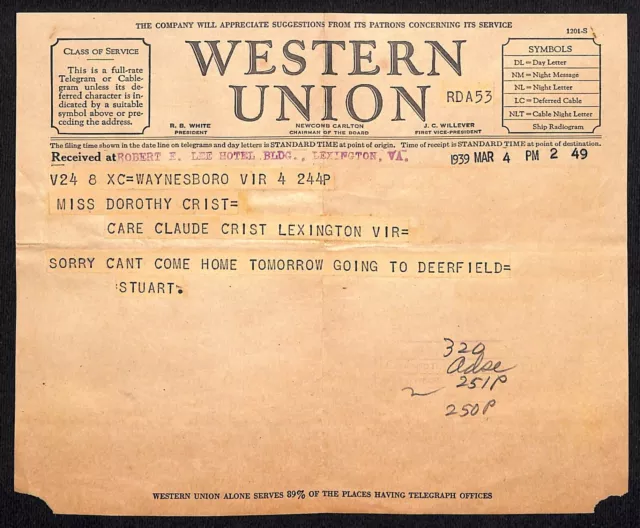 THE COMPANY WILL APPRECIATE SUGGESTIONS FROM ITS PATRONS CONCERNING ITS SERVICE
1201-S
CLASS OF SERVICE
This is a full-rate
Telegram or Cable-
gram unless its de-
ferred character is in-
dicated by a suitable
symbol above or preced-
ing the address.
WESTERN
UNION
RDA53
R. B. WHITE
PRESIDENT
NEWCOMB CARLTON
CHAIRMAN OF THE BOARD
J. C. WILLEVER
FIRST VICE-PRESIDENT
SYMBOLS
DL = Day Letter
NM = Night Message
NL = Night Letter
LC = Deferred Cable
NLT = Cable Night Letter
Ship Radiogram
The filing time shown in the date line on telegrams and day letters is STANDARD TIME at point of origin. Time of receipt is STANDARD TIME at point of destination.
Received at ROBERT E. LEE HOTEL BLDG., LEXINGTON, VA.
1939 MAR 4 PM 2 49
V24 8 XC=WAYNESBORO VIR 4 244P
MISS DOROTHY CRIST=
CARE CLAUDE CRIST LEXINGTON VIR=
SORRY CANT COME HOME TOMORROW GOING TO DEERFIELD=
STUART.
320
251P
250P
WESTERN UNION ALONE SERVES 89% OF THE PLACES HAVING TELEGRAPH OFFICES